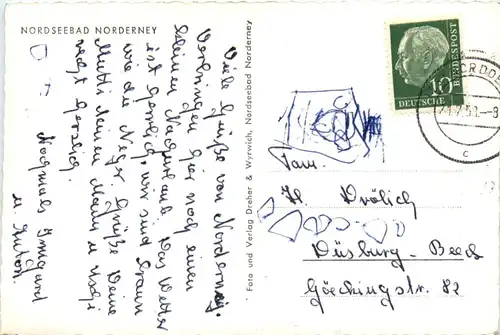 NORDSEEBAD NORDERNEY
Viele Grüße von Norderney.
Verbringen hier noch einen
kleinen Nachurlaub. Das Wetter
ist herrlich, wir sind braun
wie die Neger. Grüße Deine
Mutti, Deinen Mann u. Uschi
recht herzlich.
Nochmals Irmgard
u. Anton.
Foto und Verlag Dreher & Wyrwich, Nordseebad Norderney
10
DEUTSCHE
BUNDESPOST
c
Fam.
H. Frölich
Duisburg-Beeck
Goeckingstr. 82